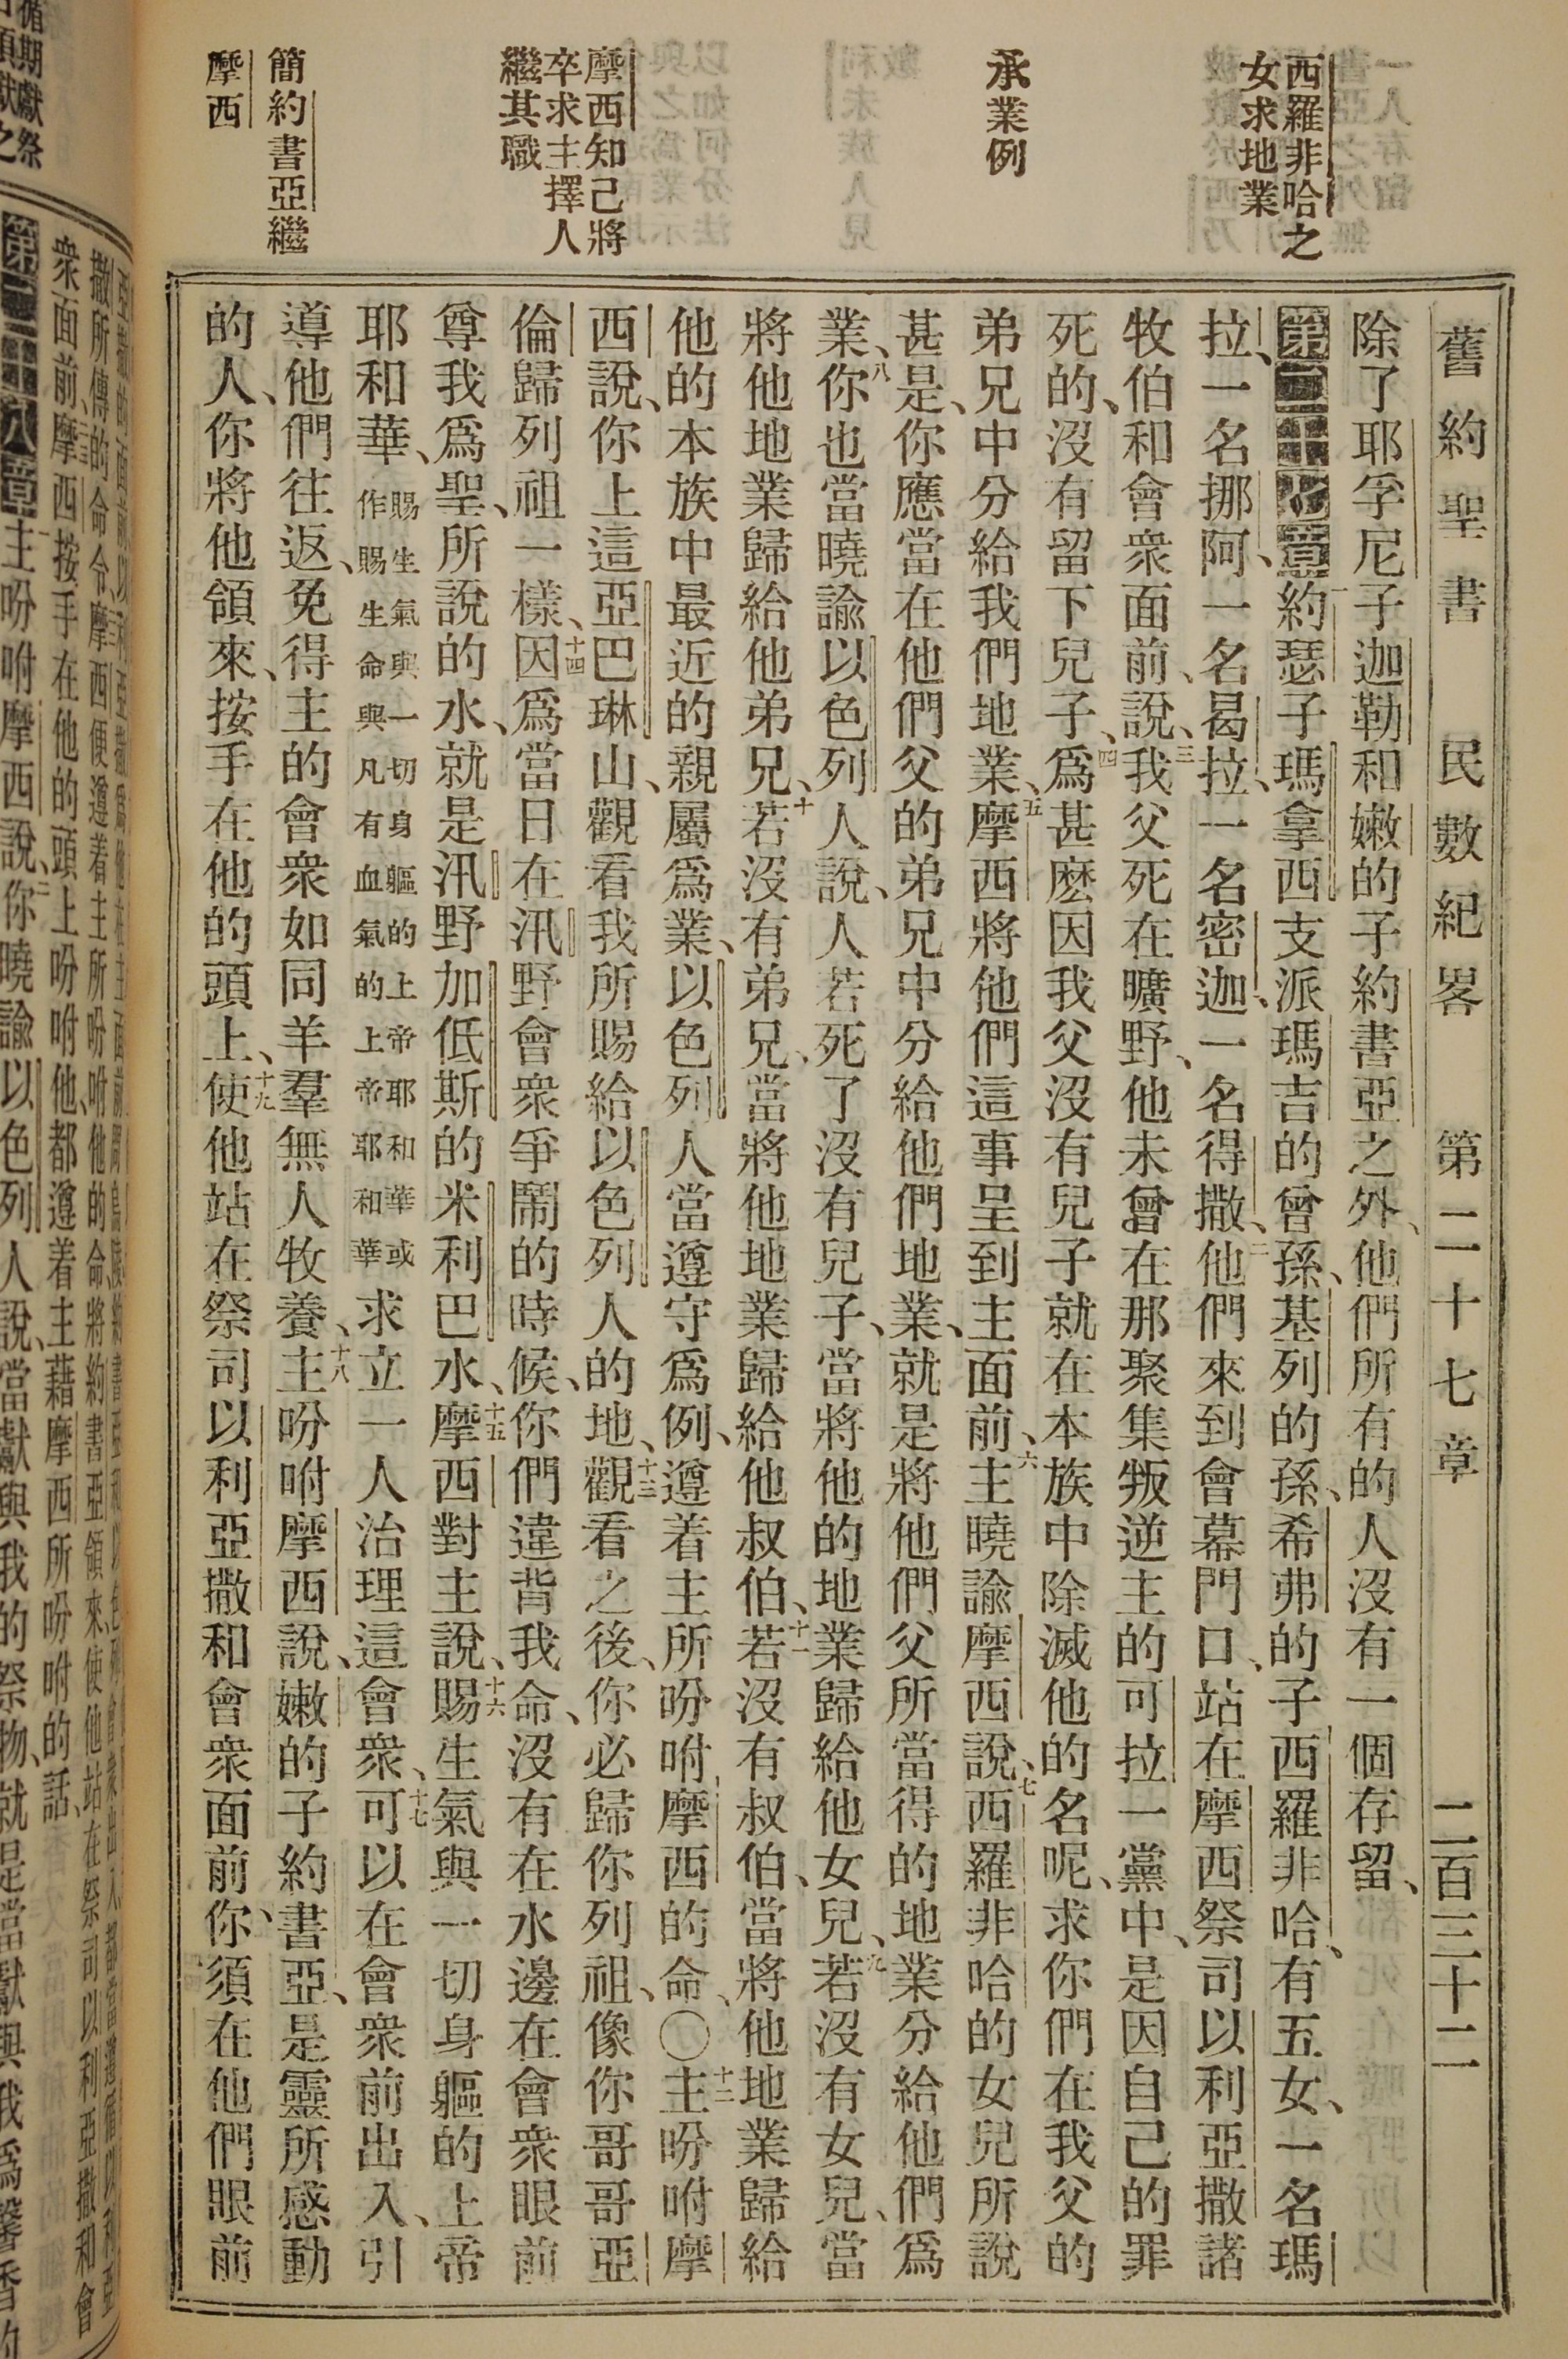 西羅非哈之
女求地業
承業例
摩西知己將
卒求主擇人
繼其職
簡約書亞繼
摩西
舊約聖書 民數紀畧 第二十七章 二百三十二
除了耶孚尼子迦勒和嫩的子約書亞之外、他們所有的人沒有一個存留、
第二十七章一約瑟子瑪拿西支派瑪吉的曾孫、基列的孫、希弗的子西羅非哈、有五女、一名瑪
拉、一名挪阿、一名曷拉、一名密迦、一名得撒、二他們來到會幕門口、站在摩西祭司以利亞撒諸
牧伯和會衆面前、說、三我父死在曠野、他未曾在那聚集叛逆主的可拉一黨中、是因自己的罪
死的、沒有留下兒子、四爲甚麽因我父沒有兒子就在本族中除滅他的名呢、求你們在我父的
弟兄中分給我們地業、五摩西將他們這事呈到主面前、六主曉諭摩西說、七西羅非哈的女兒所說
甚是、你應當在他們父的弟兄中分給他們地業、就是將他們父所當得的地業分給他們爲
業、八你也當曉諭以色列人說、人若死了沒有兒子、當將他的地業歸給他女兒、九若沒有女兒、當
將他地業歸給他弟兄、十若沒有弟兄、當將他地業歸給他叔伯、十一若沒有叔伯、當將他地業歸給
他的本族中最近的親屬爲業、以色列人當遵守爲例、遵着主所吩咐摩西的命、〇十二主吩咐摩
西說、你上這亞巴琳山、觀看我所賜給以色列人的地、十三觀看之後、你必歸你列祖、像你哥哥亞
倫歸列祖一樣、十四因爲當日在汛野會衆爭鬧的時候、你們違背我命、沒有在水邊在會衆眼前
尊我爲聖、所說的水、就是汛野加低斯的米利巴水、十五摩西對主說、十六賜生氣與一切身軀的上帝
耶和華、賜生氣與一切身軀的上帝耶和華或作賜生命與凡有血氣的上帝耶和華求立一人治理這會衆、十七可以在會衆前出入、引
導他們往返、免得主的會衆如同羊羣無人牧養、十八主吩咐摩西說、嫩的子約書亞、是靈所感動
的人、你將他領來、按手在他的頭上、十九使他站在祭司以利亞撒和會衆面前、你須在他們眼前
循期獻祭
撒所傳的命令、摩西便遵着主所吩咐他的命、將約書亞領來、使他站在祭司以利亞撒和會
衆面前、摩西按手在他的頭上吩咐他、都遵着主藉摩西所吩咐的話、
第二十八章一主吩咐摩西說、二你曉諭以色列人說、當獻與我的祭物、就是當獻與我爲馨香的